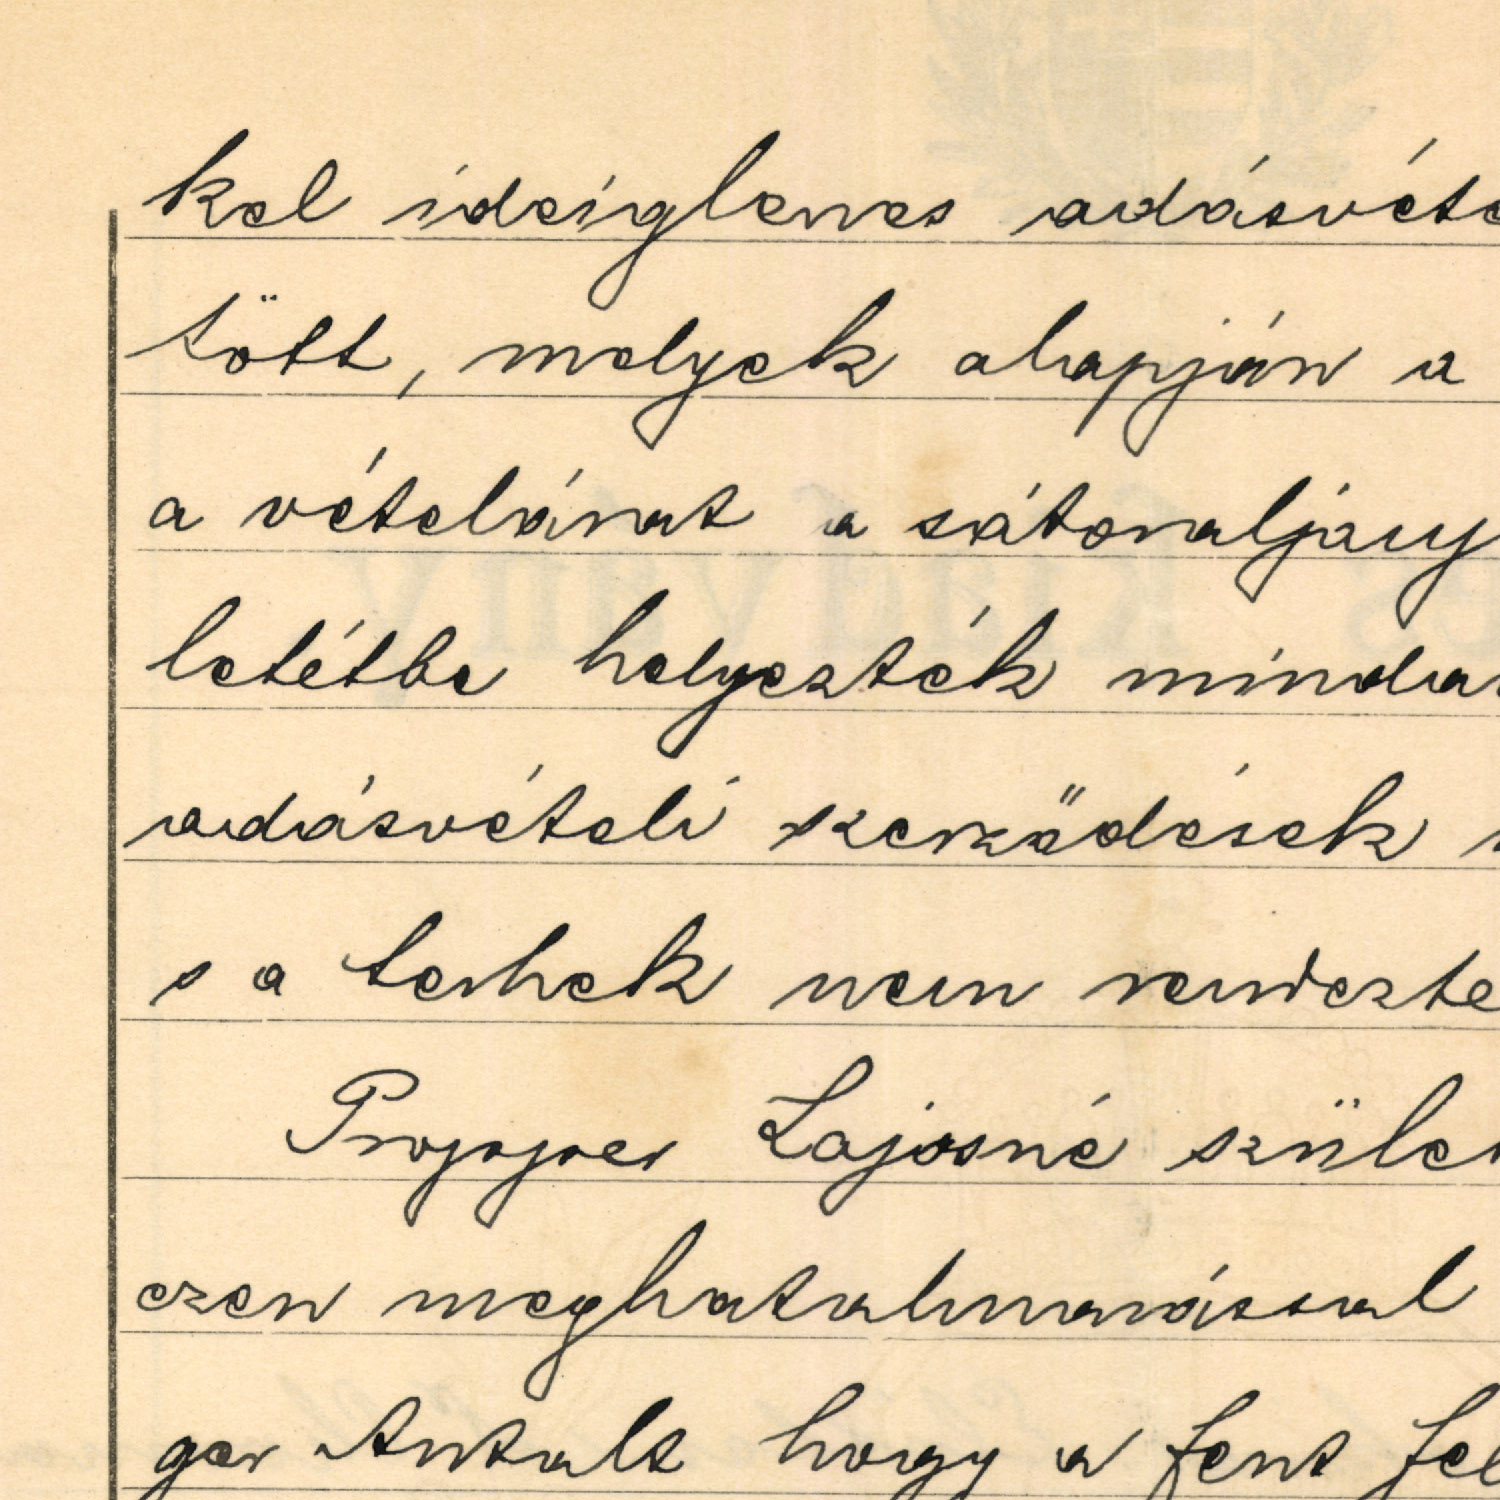 kel ideiglenes adásvéte
tött, melyek alapján a
a vételárat a sátoraljauj
letétbe helyezték minda
adásvételi szerződések
s a terhek nem rendezte
Propper Lajosné szüle
ezen meghatalmazással
ger Antalt hogy a fent fel